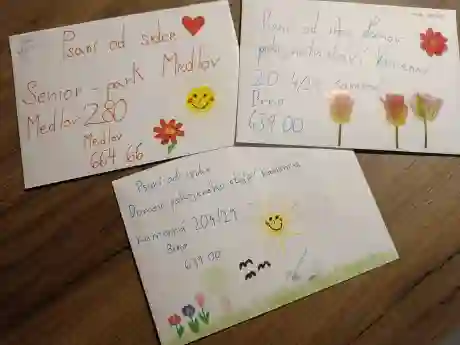 Psaní od srdce
Senior-park Medlov
Medlov 280
Medlov
664 66
Psaní od srdce Domov
pokojného stáří Kamenná
20 4/29 Kamenná
Brno
639 00
Psaní od srdce
Domov pokojného stáří Kamenná
Kamenná 204/29
Brno
639 00